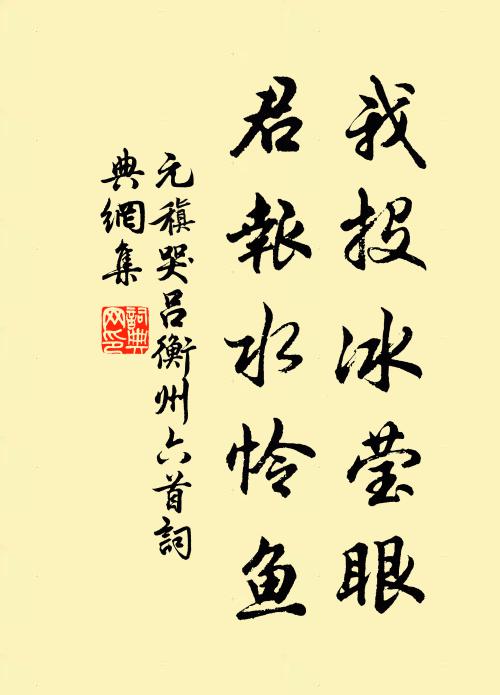 我投冰莹眼
君報水怜鱼
元稹哭吕衡州六首詞
典網集
詞典
网印